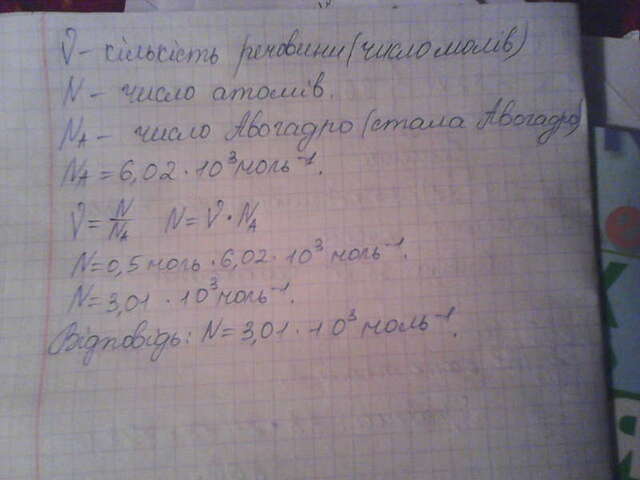 ν - кількість речовини (число молів)
N - число атомів.
N_A - число Авогадро (стала Авогадро)
N_A = 6,02 · 10³ моль⁻¹.
ν = N/N_A N = ν · N_A
N = 0,5 моль · 6,02 · 10³ моль⁻¹.
N = 3,01 · 10³ моль⁻¹.
Відповідь: N = 3,01 · 10³ моль⁻¹.